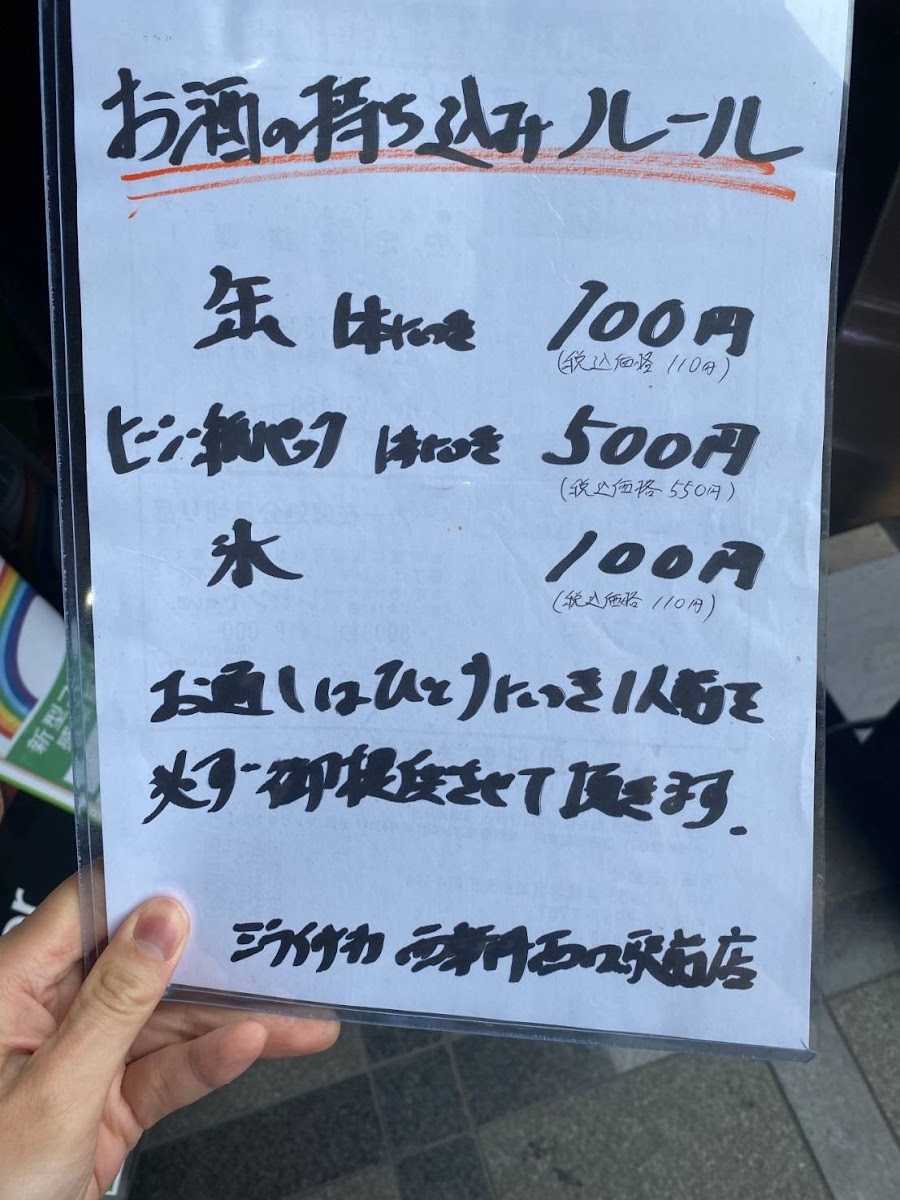 お酒の持ち込みルール
缶 1本につき 100円
(税込価格 110円)
ビン・紙パック 1本につき 500円
(税込価格 550円)
氷 100円
(税込価格 110円)
お通しはひとりにつき1人前を
必ず御提供させて頂きます.
西口駅前店
新型コ
or